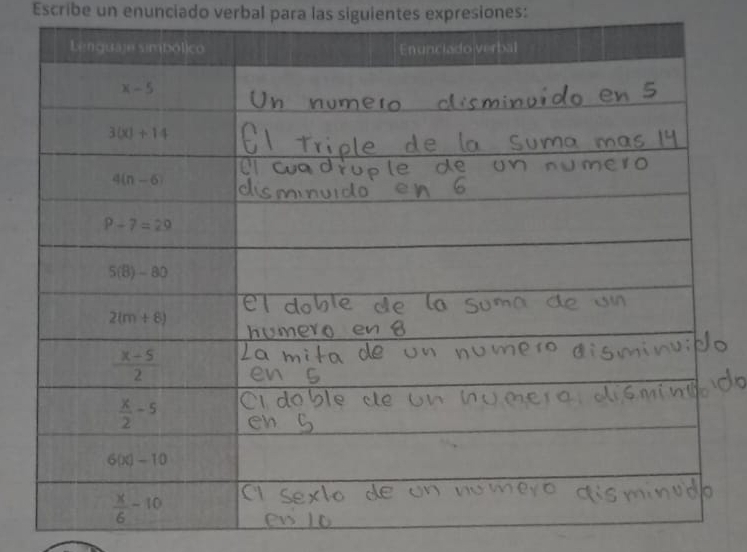 Escribe un enunciado verbal para las siguientes expresiones:
Lenguaje simbólico Enunciado verbal
x - 5 Un numero disminuido en 5
3(x) + 14 El triple de la suma mas 14
4(n - 6) El cuadruple de un numero
disminuido en 6
P - 7 = 29
5(8) - 80
2(m + 8) el doble de la suma de un
numero en 8
x - 5
2
La mita de un numero disminuido
en 5
x/2 - 5 El doble de un numero disminuido
en 5
6(x) - 10
x/6 - 10 El sexto de un numero disminudo
en 10